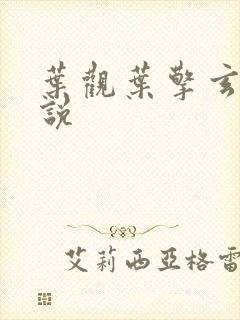 葉觀葉擎玄
說
艾莉西亞格雷